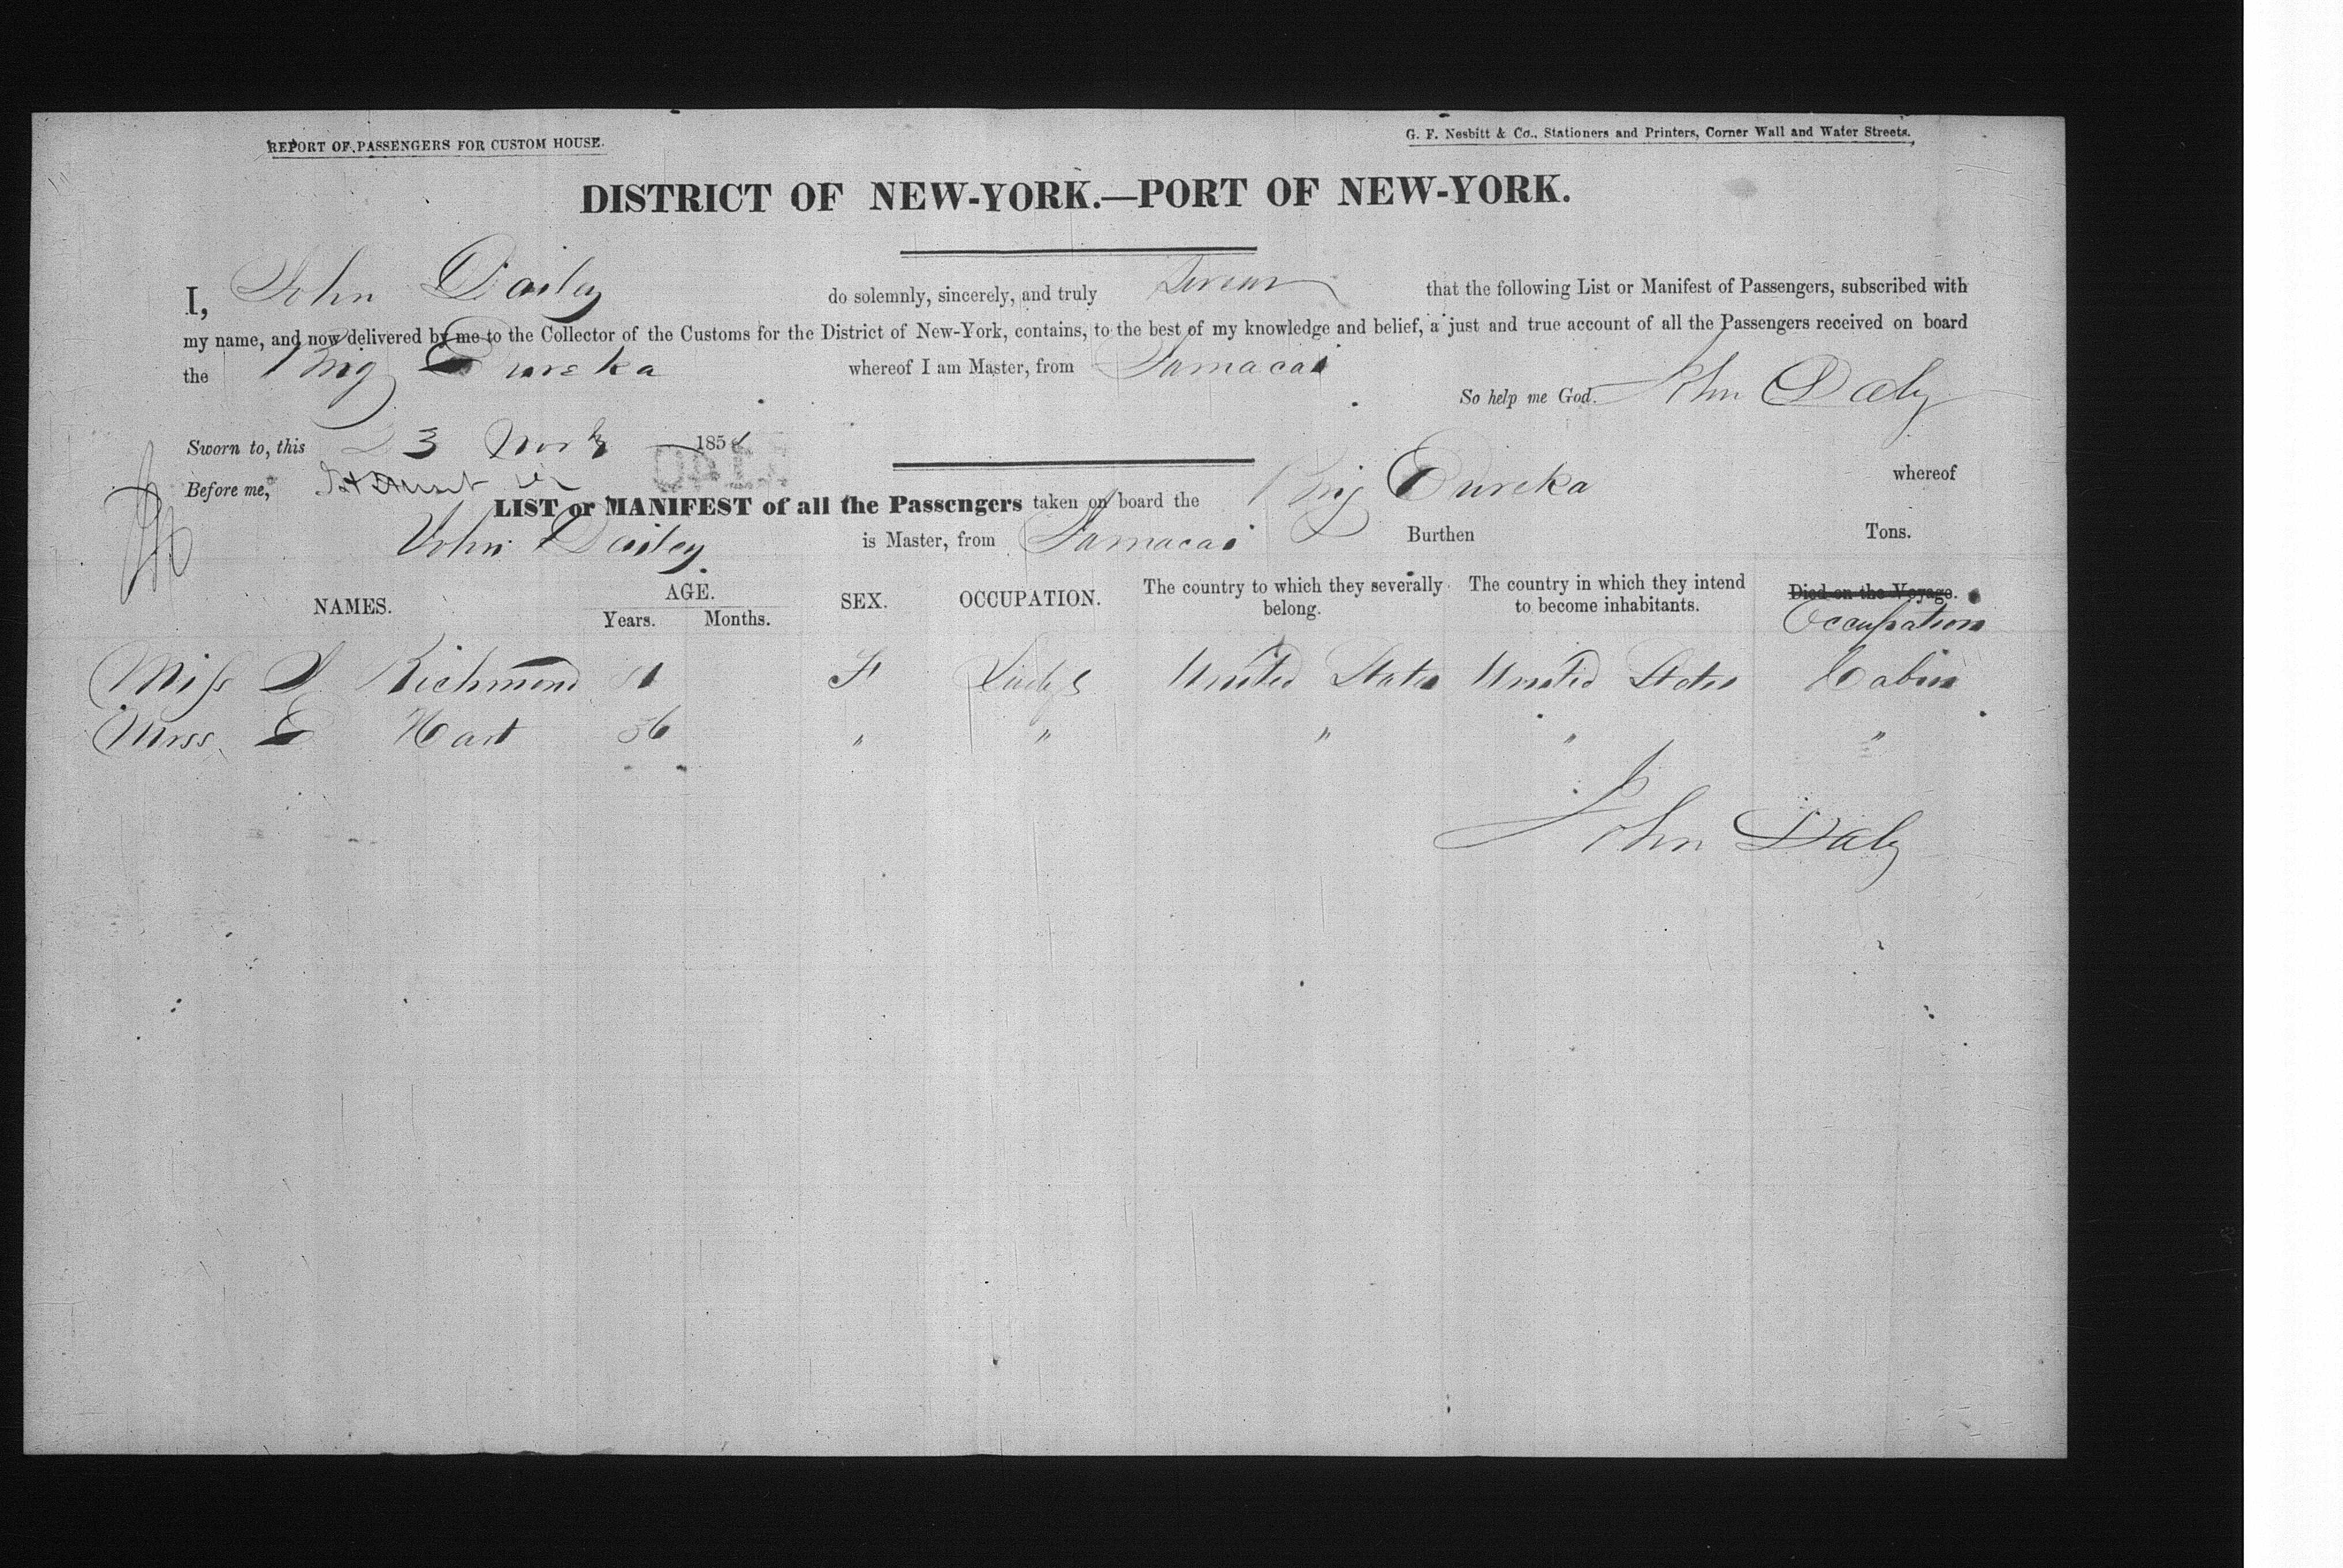 REPORT OF PASSENGERS FOR CUSTOM HOUSE.
G. F. Nesbitt & Co., Stationers and Printers, Corner Wall and Water Streets.
DISTRICT OF NEW-YORK.—PORT OF NEW-YORK.
I, John Dailey do solemnly, sincerely, and truly Swear that the following List or Manifest of Passengers, subscribed with
my name, and now delivered by me to the Collector of the Customs for the District of New-York, contains, to the best of my knowledge and belief, a just and true account of all the Passengers received on board
the Brig Eureka whereof I am Master, from Jamacai
So help me God. John Daly
Sworn to, this 23 185
Before me,
LIST or MANIFEST of all the Passengers taken on board the Brig Eureka whereof
John Dailey is Master, from Jamacai Burthen Tons.
NAMES. AGE. SEX. OCCUPATION. The country to which they severally belong. The country in which they intend to become inhabitants. Died on the Voyage.
Years. Months. Occupation
Miss Richmond F United States United States Cabin
Miss E Hart 36 " " " " "
John Daly